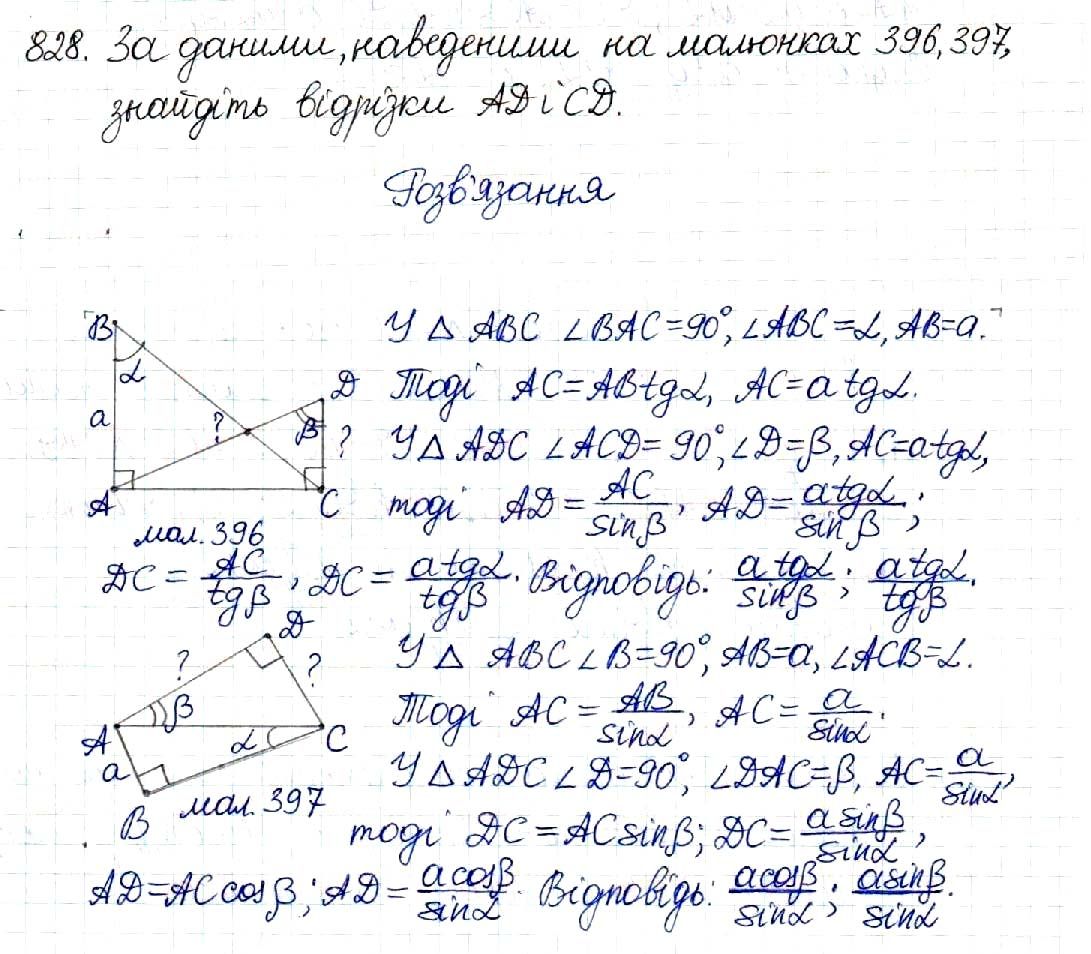 828. За даними, наведеними на малюнках 396, 397,
знайдіть відрізки AD і CD.
Розв'язання
B
α
a
?
D
β
?
A
C
мал. 396
У △ ABC ∠BAC=90°, ∠ABC=α, AB=a.
Тоді AC=ABtgα, AC=a tgα.
У △ ADC ∠ACD=90°, ∠D=β, AC=a tgα,
тоді AD=AC/sinβ, AD=a tgα/sinβ;
DC=AC/tgβ, DC=a tgα/tgβ. Відповідь: a tgα/sinβ; a tgα/tgβ.
D
?
?
β
A
α
C
a
B
мал. 397
У △ ABC ∠B=90°, AB=a, ∠ACB=α.
Тоді AC=AB/sinα, AC=a/sinα.
У △ ADC ∠D=90°, ∠DAC=β, AC=a/sinα,
тоді DC=ACsinβ; DC=a sinβ/sinα,
AD=AC cosβ; AD=a cosβ/sinα. Відповідь: a cosβ/sinα; a sinβ/sinα.